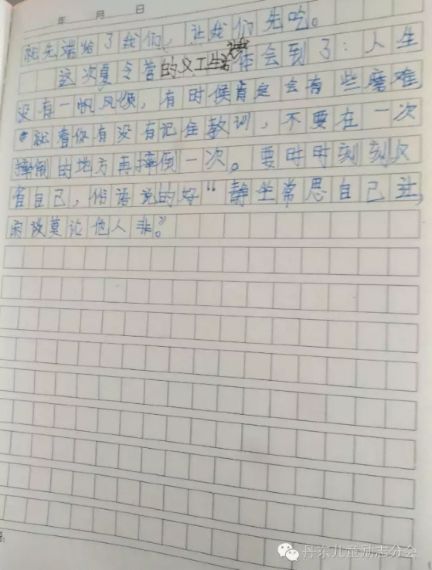 年 月 日
就先端给了我们，让我们先吃。
这次夏令营的义工生活体会到了：人生
没有一帆风顺，有时候肯定会有些磨难
，就看你有没有记住教训，不要在一次
摔倒的地方再摔倒一次。要时时刻刻反
省自己，俗语说的好“静坐常思自己过，
闲谈莫论他人非。”
丹东儿童励志分会